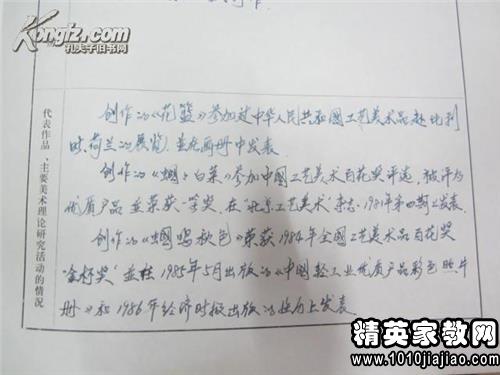 Kongfz.com
孔夫子旧书网
代表作品、主要美术理论研究活动的情况
创作的《花篮》参加过中华人民共和国工艺美术品赴比利
时、荷兰的展览，并在画册中发表
创作的《蝈蝈白菜》参加中国工艺美术百花奖评选，被评为
优质产品並荣获一等奖，在"北京工艺美术"杂志1981年第四期上发表。
创作的《蝈鸣秋色》荣获1984年全国工艺美术品百花奖
"金杯奖"並在1985年5月出版的《中国轻工业优质产品彩色照片
册》和1986年经济时报出版的 上发表
精英家教网
www.1010jiajiao.com